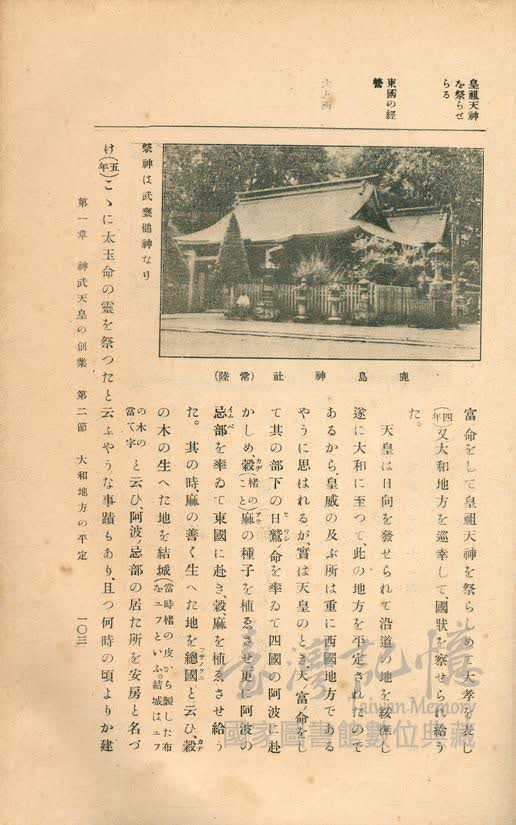 皇祖天神
を祭らせ
らる
東國の經
營
祭神は武甕槌神なり
鹿島神社(常陸)
富命をして皇祖天神を祭らしめて大孝を表し
(四年)又大和地方を巡幸して、國狀を察せられ給う
た。
天皇は日向を發せられて沿道の地を綏撫し
遂に大和に至つて、此の地方を平定されたので
あるから、皇威の及ぶ所は重に西國地方である
やうに思はれるが、實は天皇のとき、天富ノ命をし
て其の部下の日鷲ノ命を率ゐて四國の阿波に赴
かしめ、穀(楮のこと)麻の種子を植ゑさせ更に阿波の
忌部を率ゐて東國に赴き、穀、麻を植ゑさせ給う
た。其の時、麻の善く生へた地を總國と云ひ、穀
の木の生へた地を結城(當時楮の皮から製した布をユフといふ。結城はユフ
の木の當て字)と云ひ、阿波ノ忌部の居た所を安房と名づ
け(五年)こゝに太玉命の靈を祭つたと云ふやうな事蹟もあり、且つ何時の頃よりか建
第一章 神武天皇の創業 第二節 大和地方の平定
一〇三
臺灣記憶
Taiwan Memory
國家圖書館數位典藏